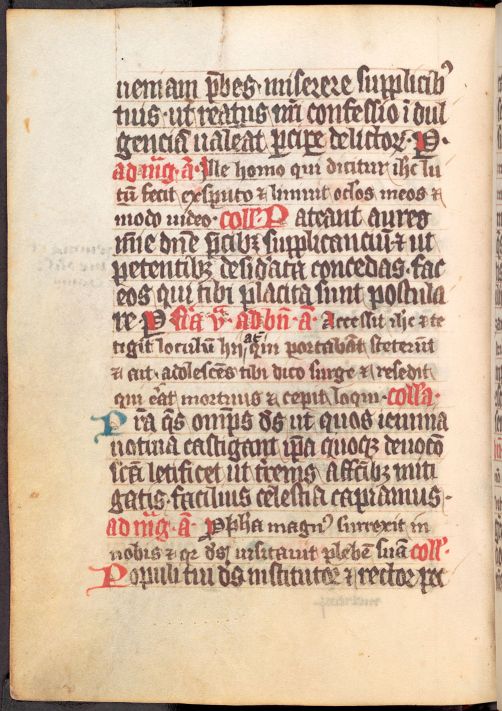 ueniam p̄bes · miserere supplicib⁹
tuis · ut reatus nr̄i confessio īdul
genciā ualeat ꝑcipe delictor̄ · P̄ ·
ad mͣg · a̅ · Ille homo qui dicitur ih̄c lu
tū fecit ex sputo ⁊ liniuit oc̄los meos ⁊
modo uideo · coll̄ Pateant aures
mīe dn̄e p̄cibꝫ supplicanciū · ⁊ ut
petentibꝫ desid̓ata concedas · fac
eos qui tibi placita sunt postula
re P̄ fīa v̄ͣ · ad bn̄ · a̅ · Accessit ih̄c ⁊ te
tigit loculū hii at̄ q̄ui portabāt steterūt
⁊ ait · adolescēs tibi dico surge ⁊ resedit
qui eāt mortuus ⁊ cepit loqui · coll̄a ·
Pra q̄s omp̄s d̄s ut quos ieiunia
uotiua castigant ip̄a quoqꝫ deuocō
sc̄ā letificet ut terrenis affc̄ibꝫ miti
gatis · facilius celestia capiamus ·
ad mͣg · a̅ · Ppha magn⁹ surrexit in
nobis ⁊ qr d̄s uisitauit plebē suā coll̄ ·
Populi tui d̄s institutor ⁊ rector pec